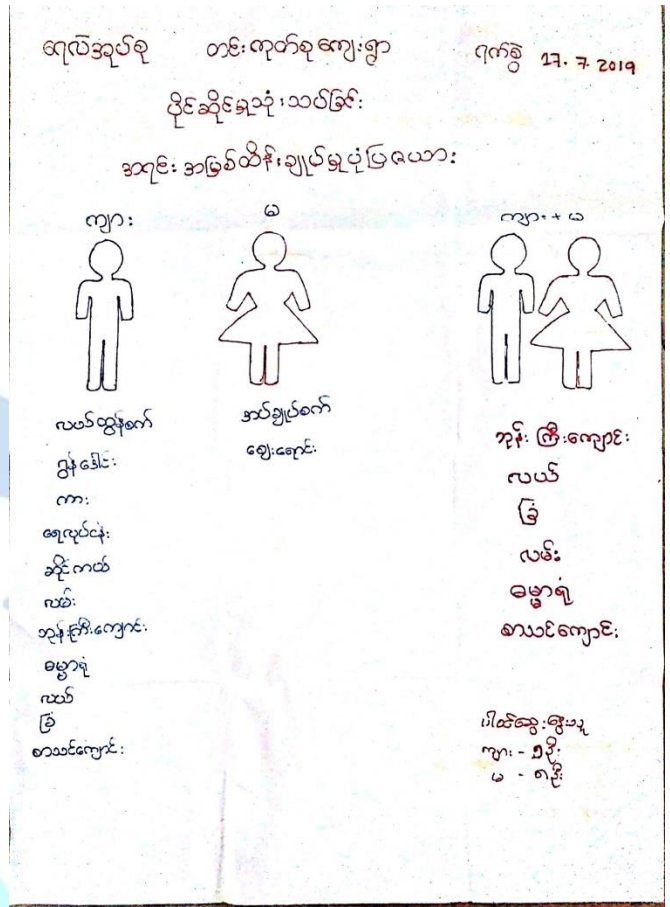 ရေလဲအုပ်စု တင်းကုတ်စုကျေးရွာ ရက်စွဲ 27. 7. 2019
ပိုင်ဆိုင်မှုသုံးသပ်ခြင်း
အရင်းအမြစ်ထိန်းချုပ်မှုပုံပြဇယား
ကျား
မ
ကျား + မ
လယ်ထွန်စက်
ဂျွန်ဒေါင်း
ကား
ရေလုပ်ငန်း
ဆိုင်ကယ်
လမ်း
ဘုန်းကြီးကျောင်း
ဓမ္မာရုံ
လယ်
ခြံ
စာသင်ကျောင်း
အပ်ချုပ်စက်
ဈေးရောင်း
ဘုန်းကြီးကျောင်း
လယ်
ခြံ
လမ်း
ဓမ္မာရုံ
စာသင်ကျောင်း
ပါဝင်ဆွေးနွေးသူ
ကျား - ၁ဦး
မ - ၈ဦး